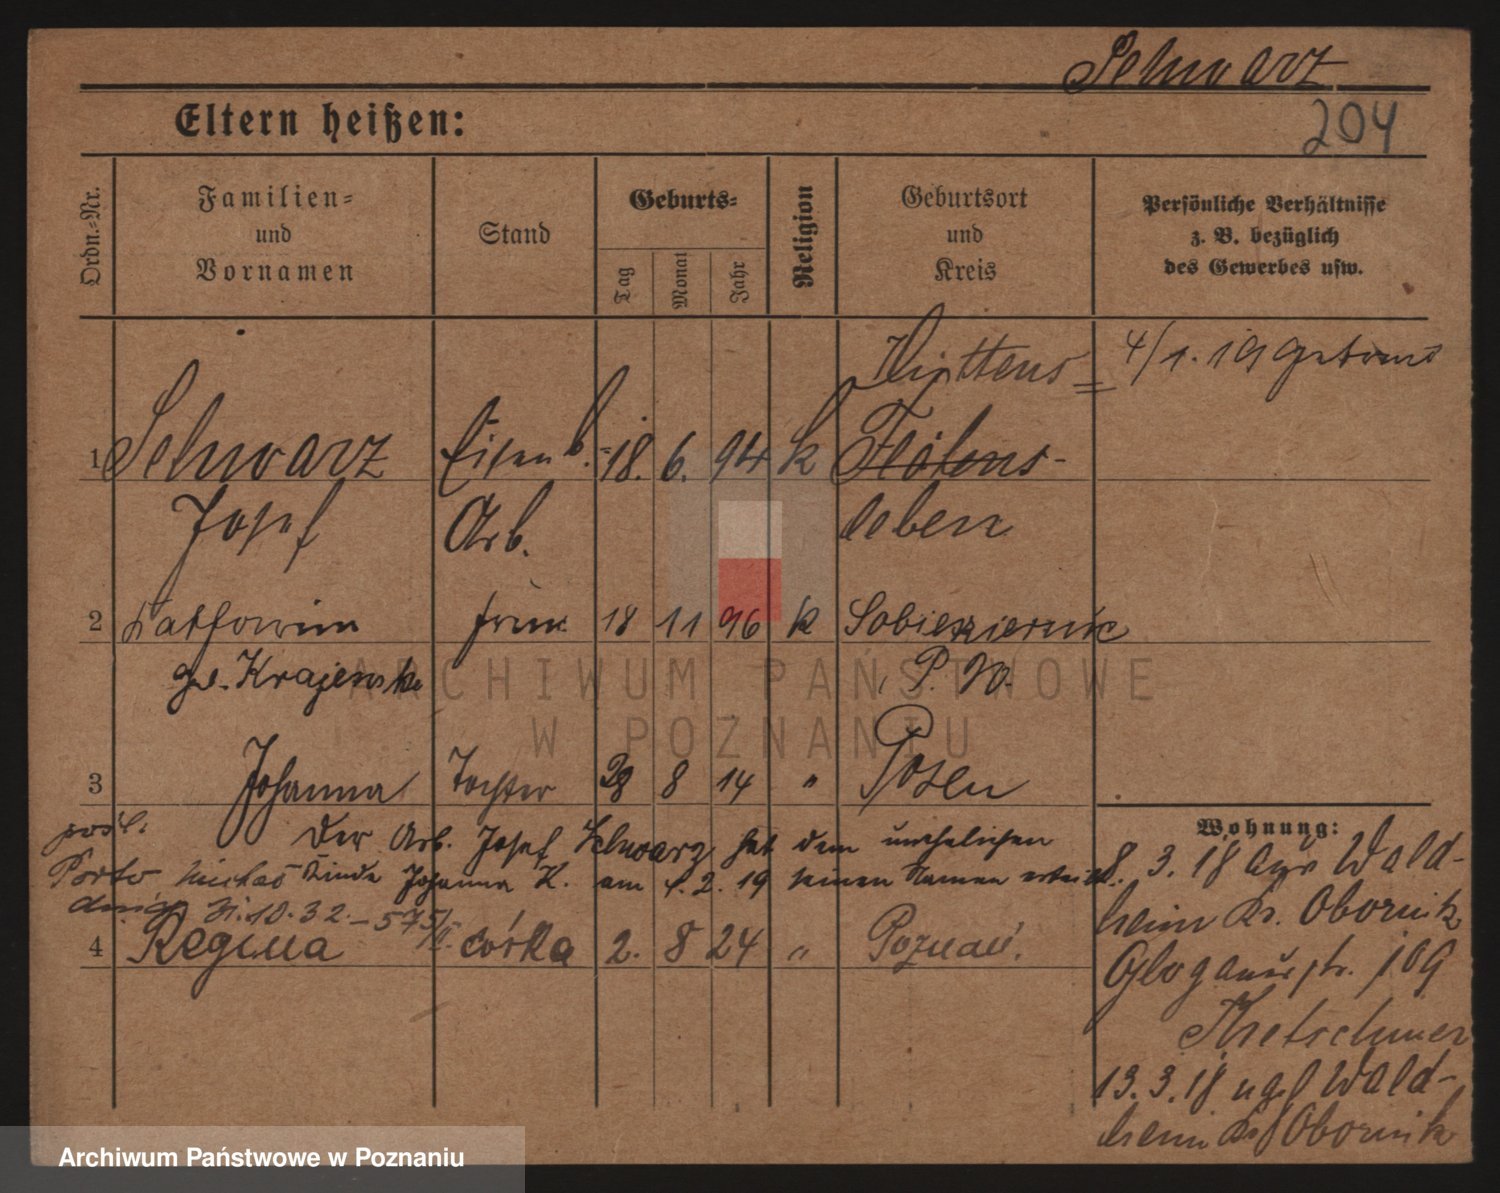 Schwarz
204
Eltern heißen:
Ordn.=Nr.
Familien=
und
Vornamen
Stand
Geburts=
Tag
Monat
Jahr
Religion
Geburtsort
und
Kreis
Persönliche Verhältnisse
z. B. bezüglich
des Gewerbes usw.
4/1. 19 getraut
1 Schwarz Eisenb.= 18. 6. 94 k
Josef Arb. leben
2 frau 18 11 96 k Sobiesziernie
P. W.
3 Johanna Tochter 28 8 14 " Posen
Der Arb. Josef Schwarz hat dem unehelichen
Kinde Johanna K. am 1. 2. 19 seinen Namen erteilt.
4 Regina córka 2. 8 24 " Poznań.
Wohnung:
8. 3. 18 aus Wald-
heim Kr. Obornik
Glogauerstr. 109
Kretschmer
13. 3. 18 Wald-
heim Kr. Obornik
ARCHIWUM PAŃSTWOWE
W POZNANIU
Archiwum Państwowe w Poznaniu